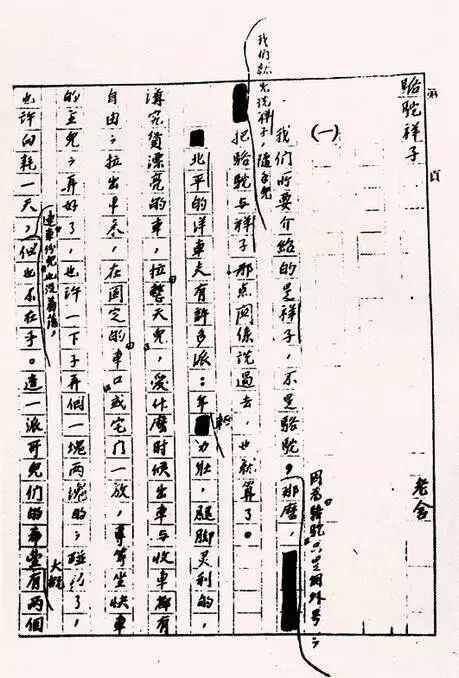 第 頁
駱駝祥子 老舍
(一)
我们所要介紹的是祥子，不是駱駝，因為“駱駝”只是個外号；那麼，
我们就先说祥子，隨手兒
把駱駝与祥子那点関係说過去，也就算了。
北平的洋車夫有許多派：年輕力壯，腿脚灵利的，
講究賃漂亮的車，拉整天兒，愛什麼時候出車与收車都有
自由；拉出車來，在固定的車口或宅门一放，專等坐快車
的主兒；弄好了，也許一下子弄個一塊兩塊的；碰巧了，
也許白耗一天，連車份兒也沒着落，但也不在乎。這一派哥兒们的希望大概有兩個